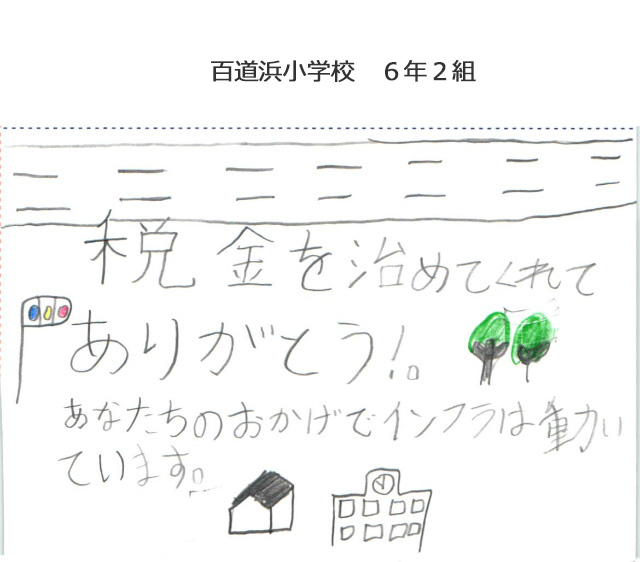 百道浜小学校　６年２組
税金を治めてくれて
ありがとう!。
あなたちのおかげでインフラは動い
ています。